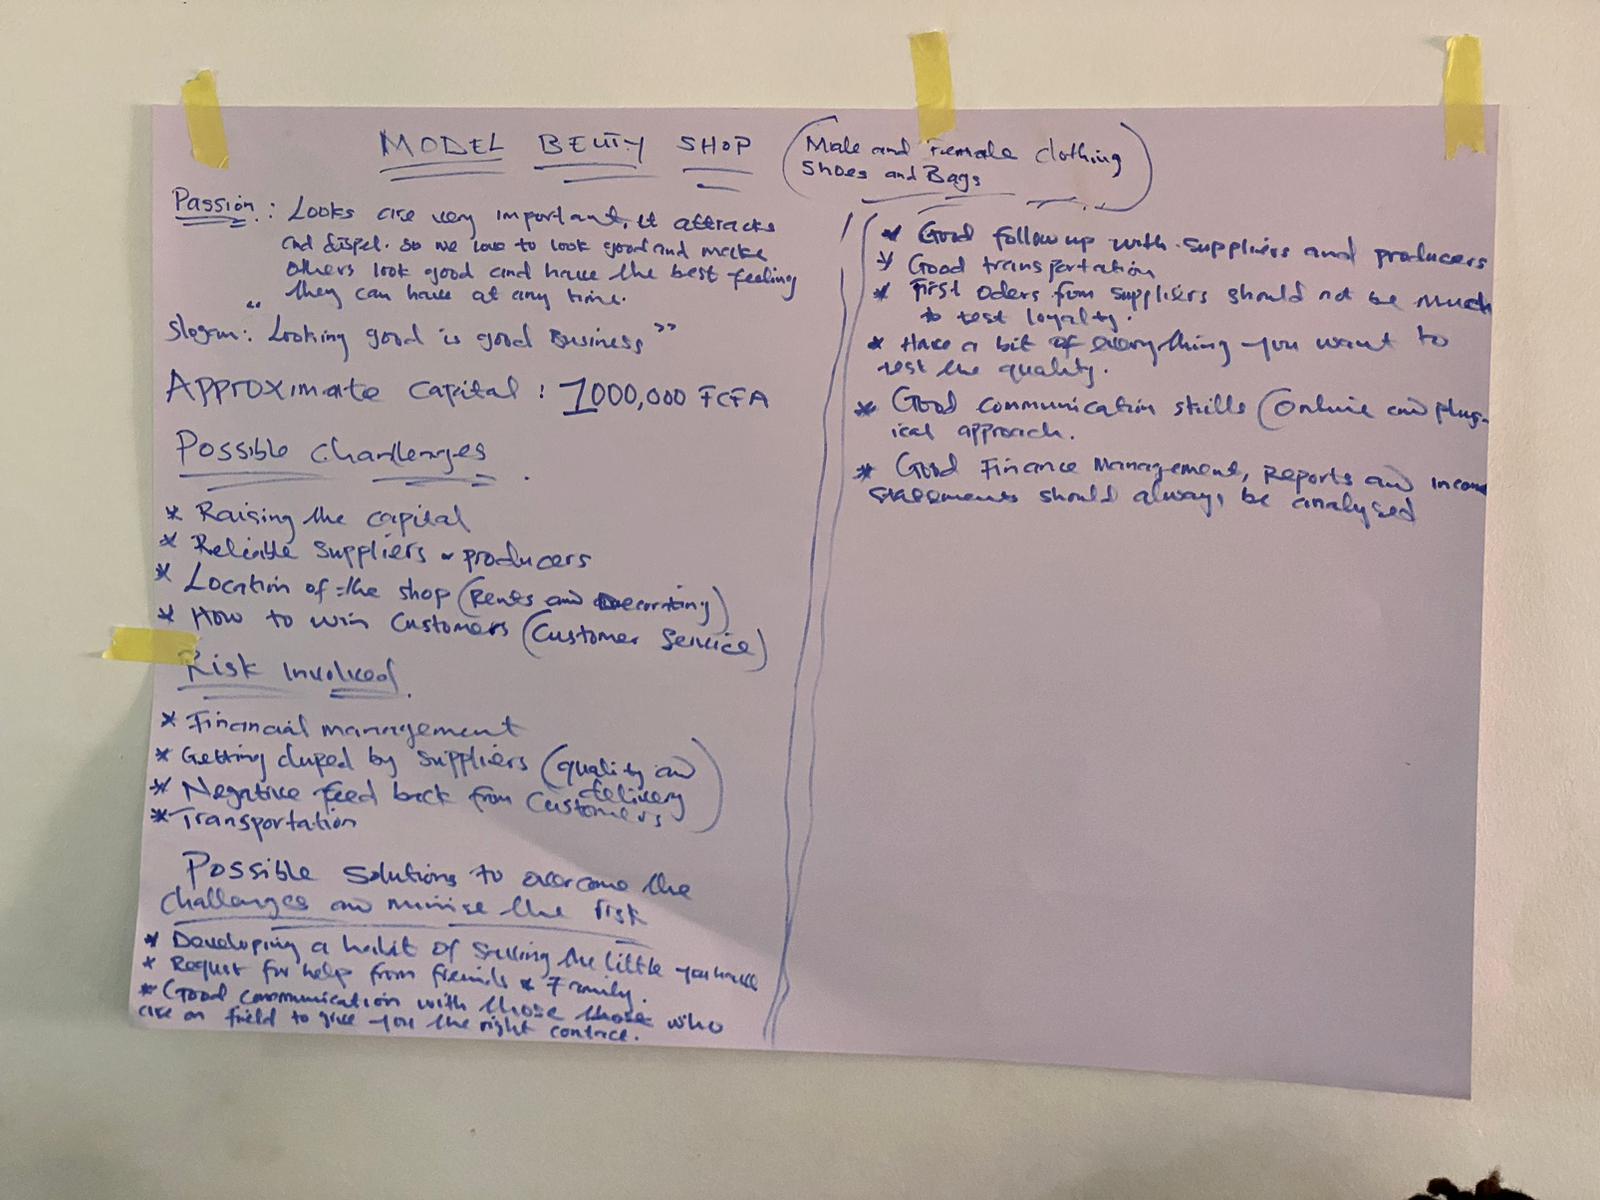 MODEL BEUTY SHOP (Male and Female clothing
Shoes and Bags)
Passion: Looks are very important, it attracks
and dispel. so we love to look good and make
others look good and have the best feeling
they can have at any time.
Slogan: "Looking good is good Business"
Approximate capital : 1000,000 FCFA
Possible Challenges.
* Raising the capital
* Reliable suppliers & producers
* Location of the shop (Rents and Decorating)
* How to win customers (Customer Service)
Risk Involved.
* Financial management
* Getting duped by suppliers (quality and
delivery)
* Negative feed back from customers
* Transportation
Possible solutions to overcome the
challenges and minise the risk
* Developing a habit of saving the little you have
* Request for help from friends & Family.
* Good communication with those those who
are on field to give you the right contact.
* Good follow up with suppliers and producers
* Good transportation
* First oders from suppliers should not be much
to test loyalty.
* Have a bit of everything you want to
test the quality.
* Good communication skills (online and phys-
ical approach.
* Good Finance Management, Reports and income
statements should always be analysed